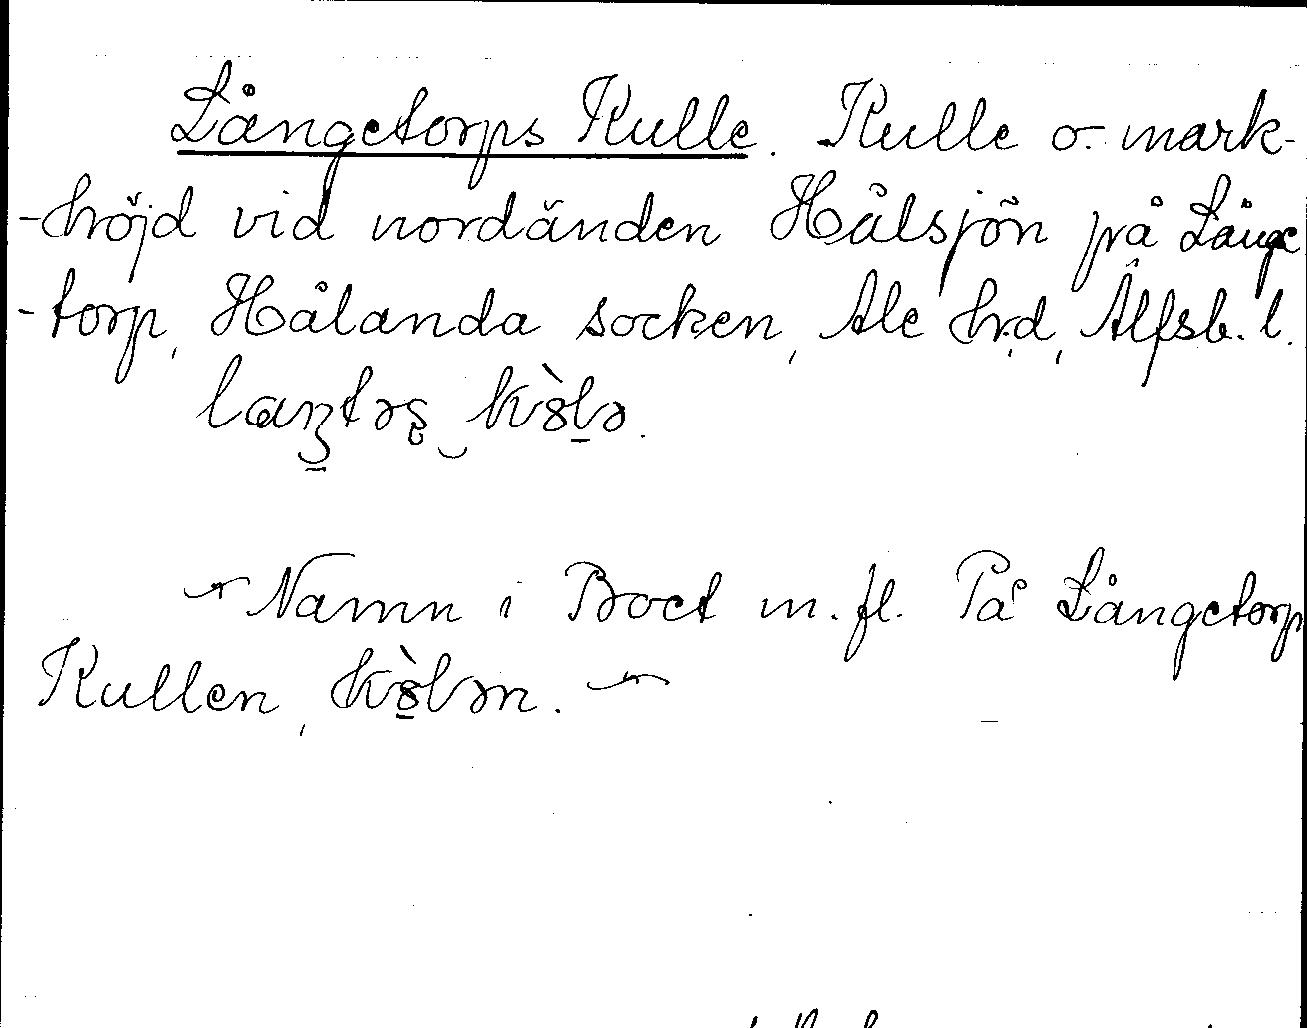 Långetorps Kulle. Kulle o. mark-
-höjd vid nordänden Hålsjön på Långe
-torp, Hålanda socken, Ale hrd, Älfsb. l.
Namn i Boet m. fl. På Långetorp
Kullen,